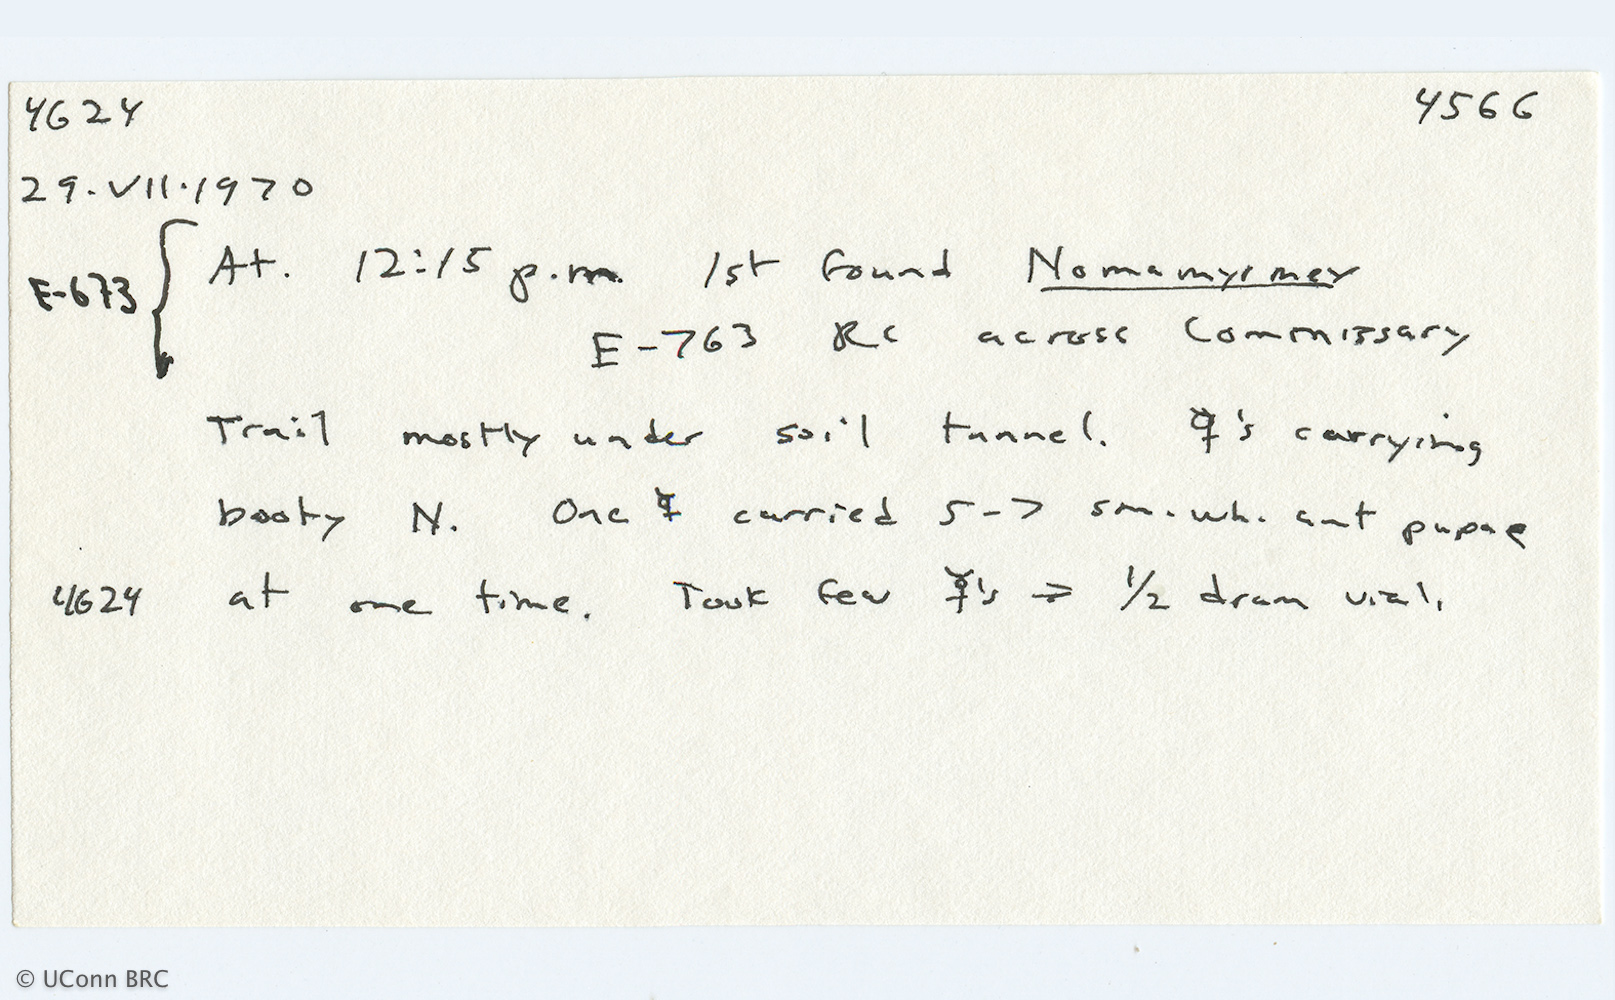 4624 4566
29.VII.1970
E-673 { At. 12:15 p.m. 1st found Nomamyrmex
E-763 Rc across Commissary
Trail mostly under soil tunnel. ☿'s carrying
booty N. One ☿ carried 5-7 sm. wh. ant pupae
4624 at one time. Took few ☿'s → 1/2 dram vial.
© UConn BRC